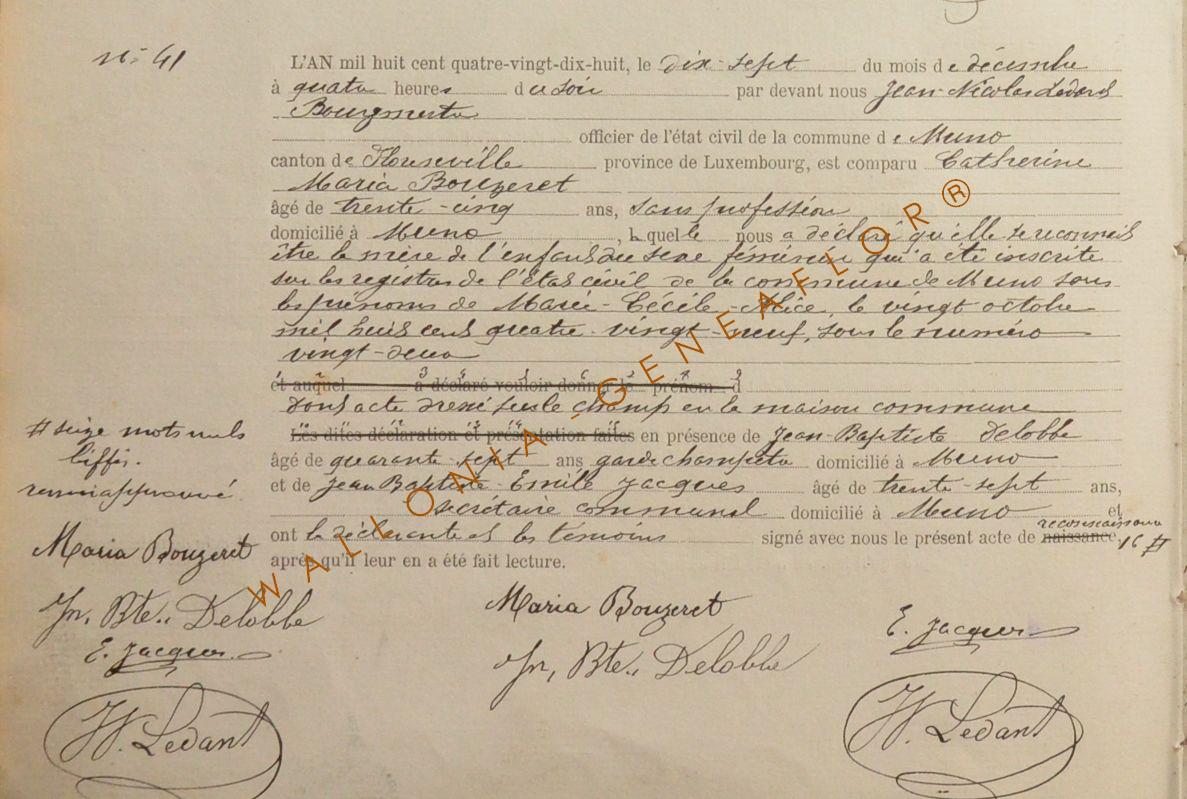 n° 41
L'AN mil huit cent quatre-vingt-dix-huit, le dix-sept du mois de décembre
à quatre heures du soir par devant nous Jean-Nicolas Ledant
Bourgmestre
officier de l'état civil de la commune de Muno
canton de Florenville province de Luxembourg, est comparu Catherine
Maria Bouzeret
âgé de trente-cinq ans, sans profession
domicilié à Muno, laquelle nous a déclaré qu'elle se reconnait
être la mère de l'enfant du sexe féminin qui a été inscrite
sur les registres de l'état civil de la commune de Muno sous
les prénoms de Marie-Cécile-Alice, le vingt octobre
mil huit cent quatre-vingt-neuf, sous le numéro
vingt-deux
et auquel a déclaré vouloir donner le prénom d
Dont acte dressé seule champ en la maison commune
Les dites déclaration et présentation faites en présence de Jean-Baptiste Delobbe
âgé de quarante-sept ans garde champêtre domicilié à Muno
et de Jean Baptiste Emile Jacques âgé de trente-sept ans,
secrétaire communal domicilié à Muno et
ont la déclarante et les témoins signé avec nous le présent acte de naissance reconnaissance 16 #
après qu'il leur en a été fait lecture.
# seize mots nuls
biffés.
renvoi approuvé
Maria Bouzeret
Jn, Bte.. Delobbe
E. Jacques
JN. Ledant
Maria Bouzeret
Jn, Bte.. Delobbe
E. Jacques
JN. Ledant
WALLONIA-GENEAFLOR®